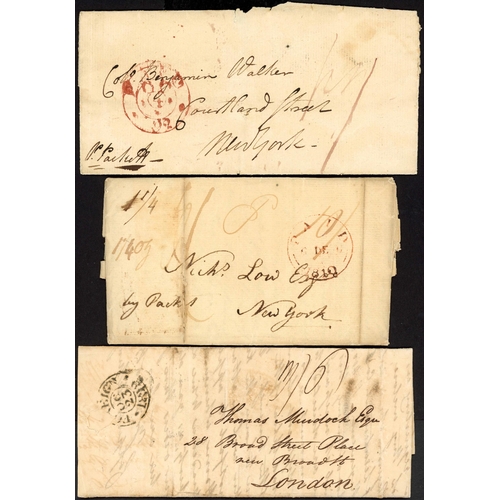 Colo. Benjamin Walker
Courtland Street
New York
Pr. Packett
1 1/4
Nichs. Low Esqr
by Packt
New York
DE
1810
FOREIGN
Thomas Murdoch Esqr
28 Broad Street Place
new Broad St
London